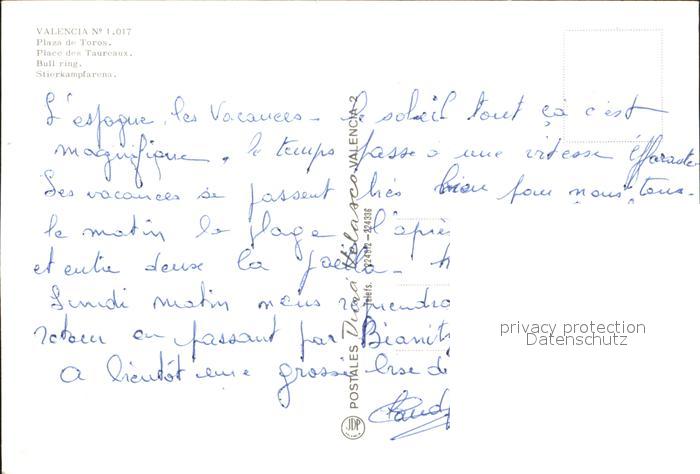 VALENCIA Nº 1.017
Plaza de Toros.
Place des Taureaux.
Bull ring.
Stierkampfarena.
L'espagne, les Vacances - le soleil tout ça c'est
magnifique, le temps passe à une vitesse effarante
Les vacances se passent très bien pour nous tous.
le matin la plage l'après
et entre deux la paella -
Lundi matin nous reprendro
retour en passant par Biarritz
A bientôt une grosse bise de
POSTALES Durá Velasco VALENCIA-2
Telefs.
JDP
privacy protection
Datenschutz